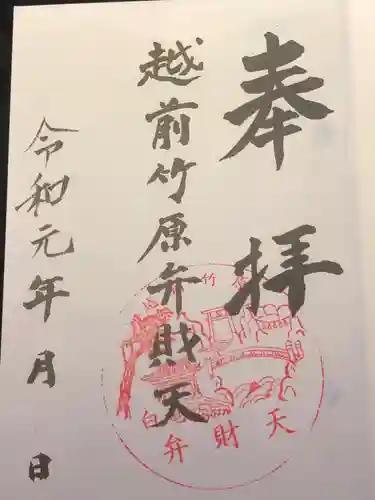 奉拝
越前竹原弁財天
令和元年月日
弁財天